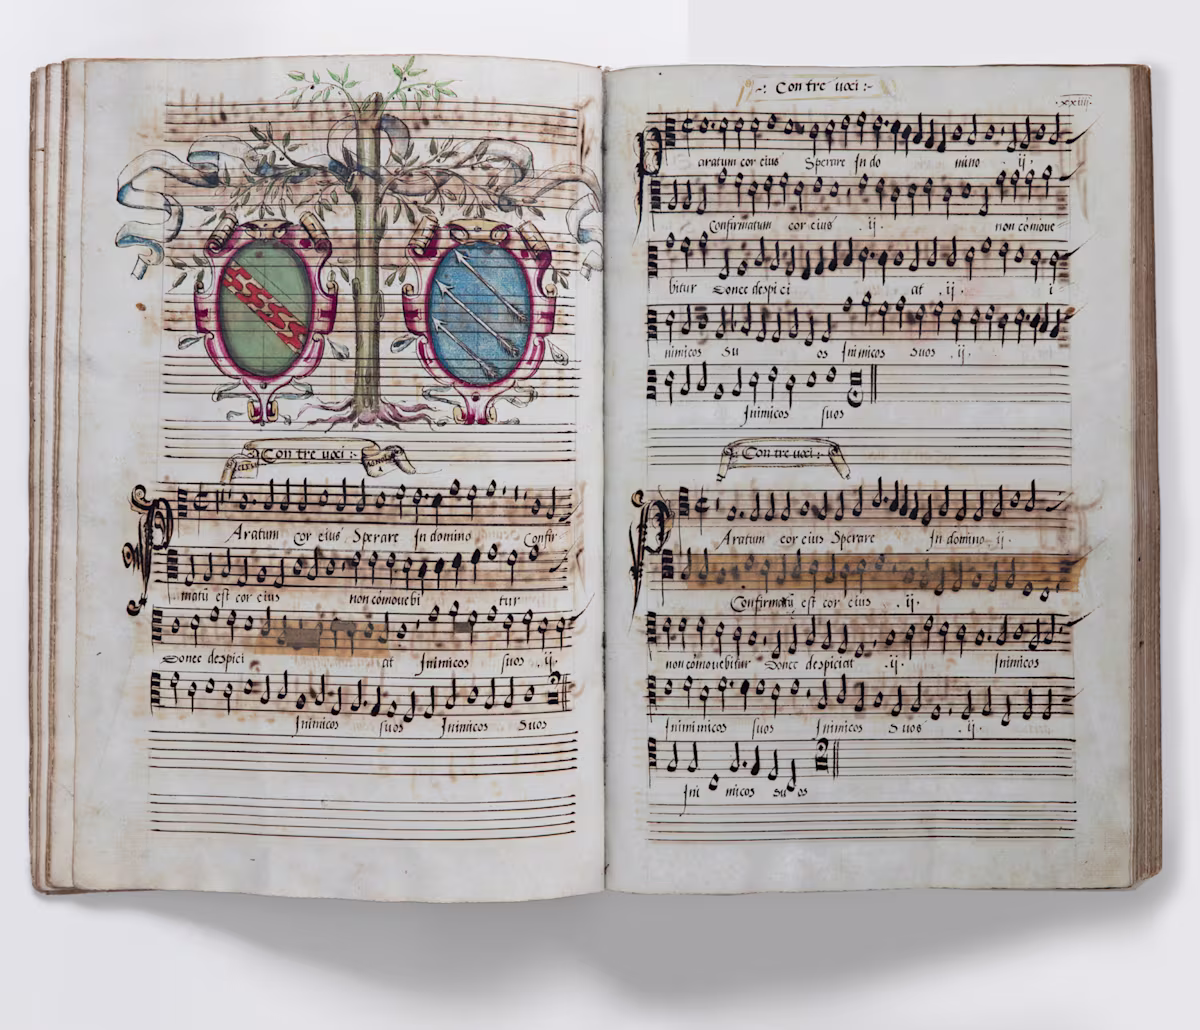 ·: Con tre voci :~
Aratum Cor eius Sperare In domino Confir
matū est cor eius non comovebi tur
Donec despici at Inimicos suos ij.
Inimicos suos Inimicos Suos
~: Con tre voci :~
·xxiiii·
Paratum cor eius Sperare In do mino ij.
Confirmatum cor eius .ij. non comove
bitur Donec despici at ij. i
nimicos Su os Inimicos suos .ij.
Inimicos suos
·: Con tre voci :~
PAratum cor eius Sperare In domino ij.
Confirmatū est cor eius .ij.
non comovebitur Donec despiciat .ij. Inimicos
Inimimicos suos Inimicos Suos .ij.
Ini micos Su os